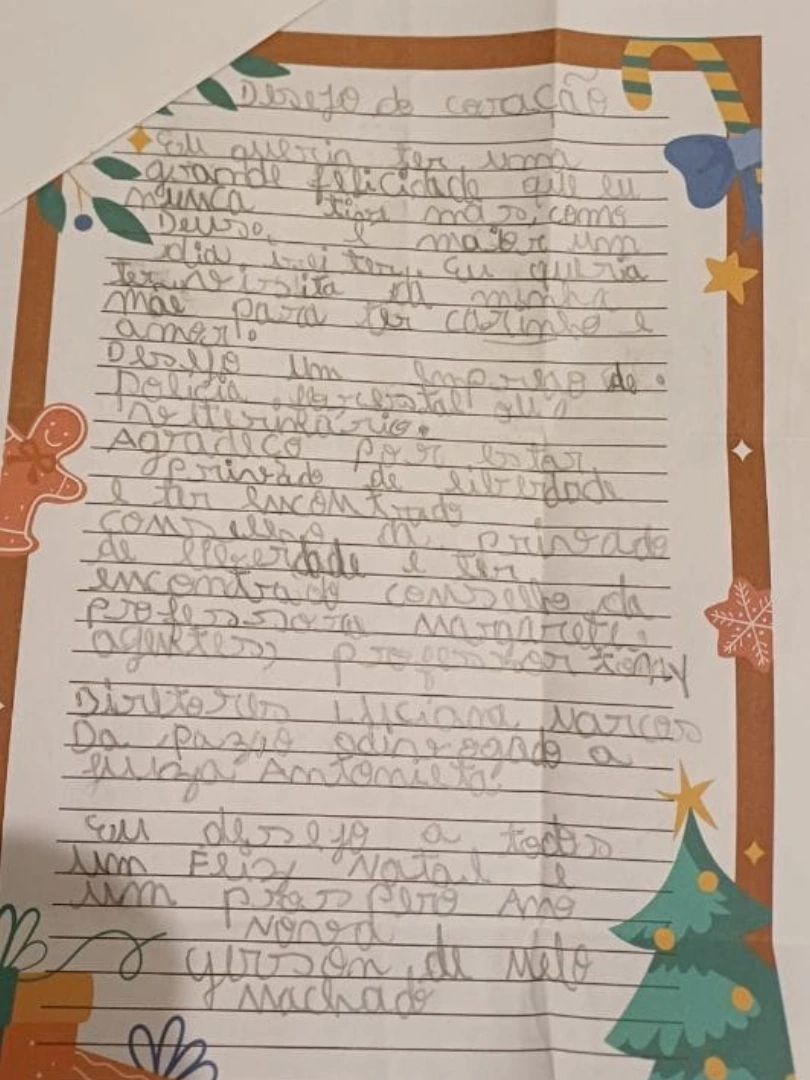 Desejo do coração
Eu queria ter uma
grande felicidade que eu
nunca tive mas, como
Deuso, é maior um
dia irei ter. Eu queria
ter visita da minha
mãe para ter carinho e
amor!.
Desejo um emprego de
Policia ou
veterinário.
Agradeço por estar
privado de liberdade
e ter encontrado
conselho da privado
de liberdade e ter
encontrado conselho da
professora Margareti,
agentes, professor tomy
Diretores Luciana Marcos
Da advogado a
juiza Antonieta!
Eu desejo a todos
um Feliz Natal e
um prospero Ano
Novo
gerson de Melo
Machado